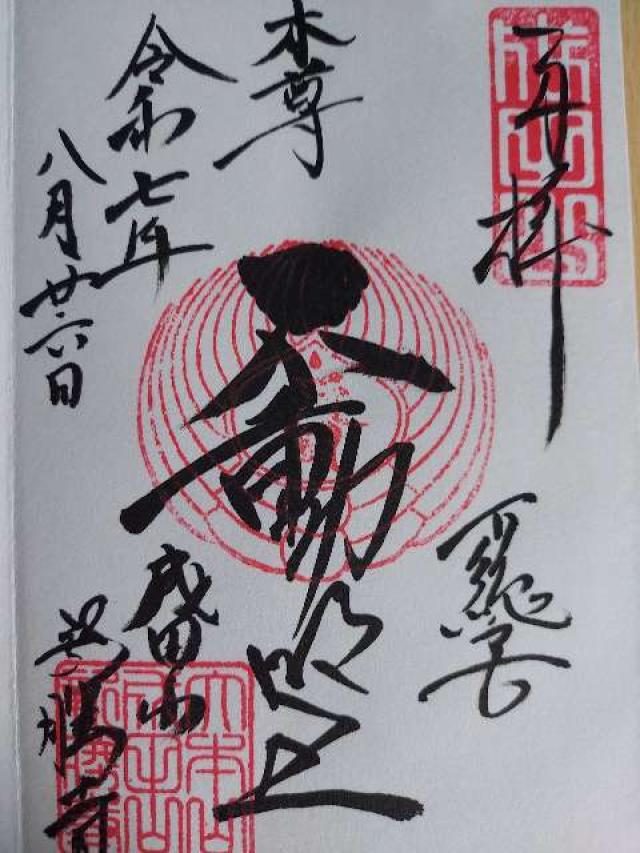 奉拝
成田山
本尊
不動明王
令和七年
八月廿六日
成田山
勝寺